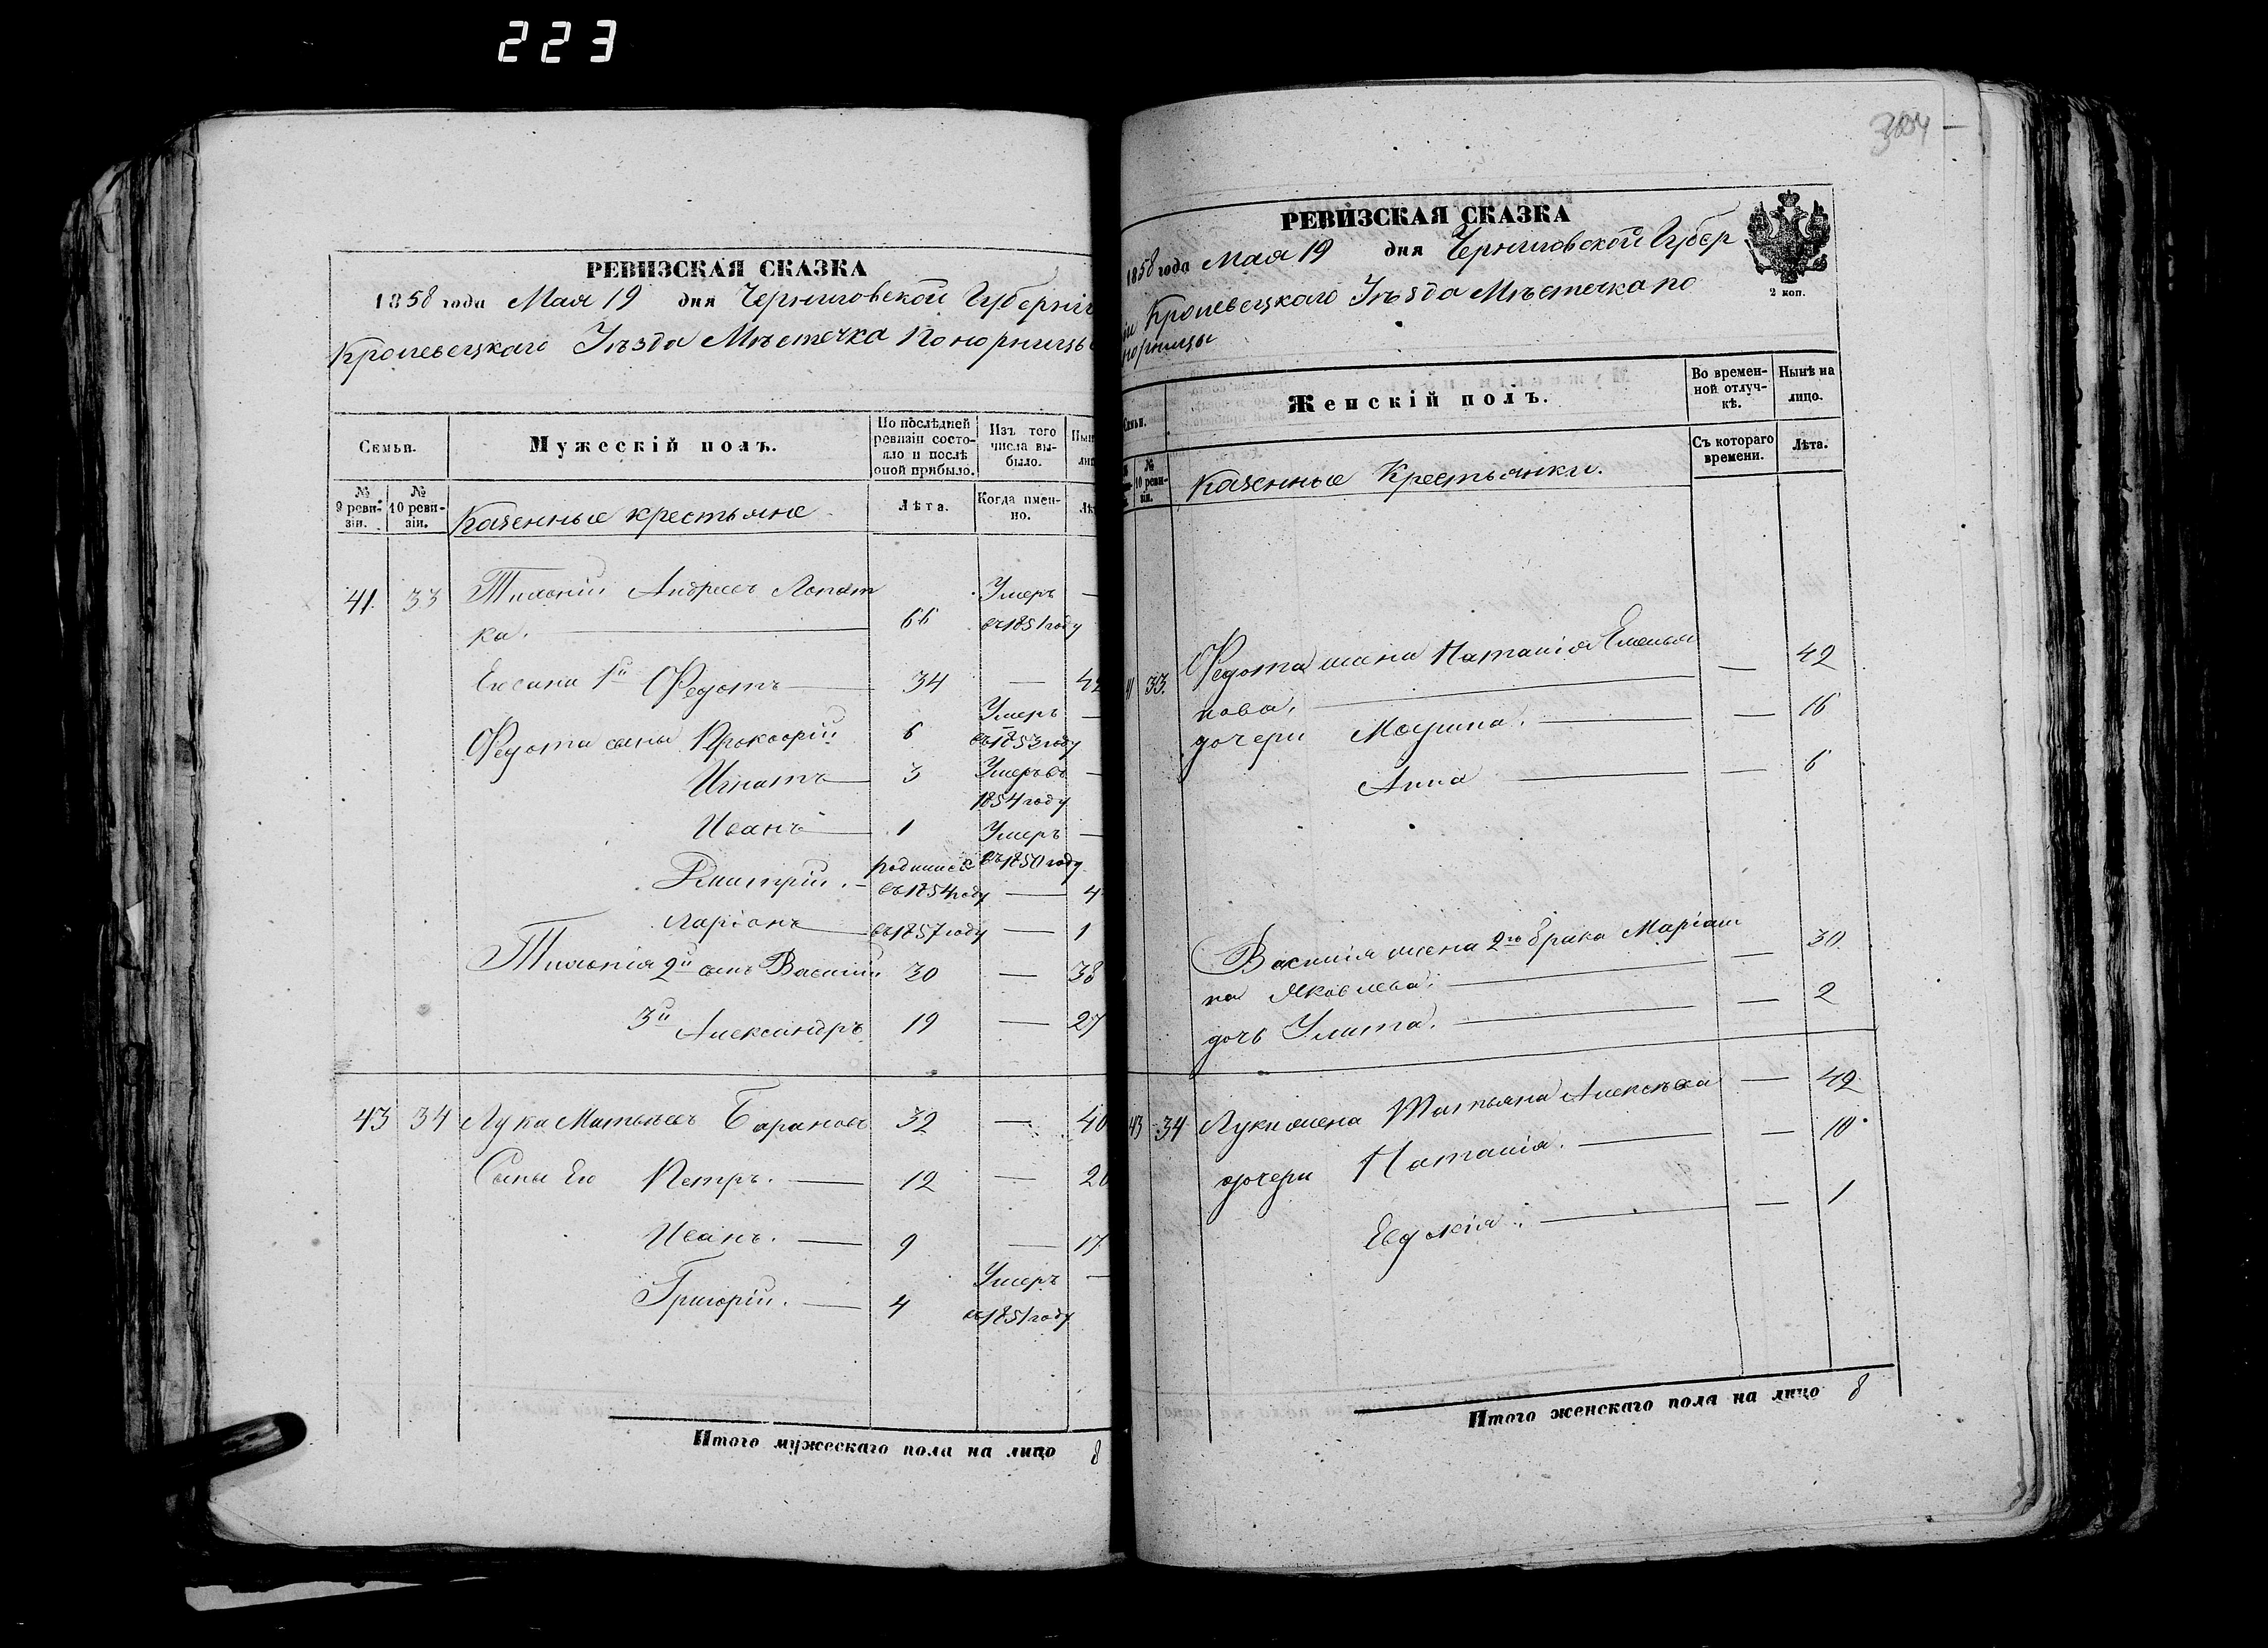 223
304
РЕВИЗСКАЯ СКАЗКА
1858 года Мая 19 дня Черниговской Губерніи
Кролевецкаго Уѣзда Мѣстечка Понорницы
Семьи.
Мужескій полъ.
По послѣдней ревизіи состояло и послѣ оной прибыло.
Изъ того числа выбыло.
№ 9 ревизіи.
№ 10 ревизіи.
Казенные крестьяне
Лѣта.
Когда именно.
41. 33 Андреевъ Лопат Умеръ —
ка. 66 въ 1851 году
Его сынъ 1й Федотъ 34 — 42
Федота сыны Прокофій 6 Умеръ въ 1853 году —
Игнатъ 3 Умеръ въ 1854 году —
Иванъ 1 Умеръ въ 1850 году —
Дмитрій. родился въ 1854 году — 4
Ларіонъ въ 1857 году — 1
2й сынъ Василій 30 — 38
3й Александръ 19 — 27
43 34 Лука Матвѣевъ Барановъ 32 — 40
Сыны Его Петръ. 12 — 20
Иванъ. 9 — 17
Григорій. 4 Умеръ въ 1851 году —
Итого мужескаго пола на лицо 8
РЕВИЗСКАЯ СКАЗКА
1858 года Мая 19 дня Черниговской Губер
ніи Кролевецкаго Уѣзда Мѣстечка по
норницы
2 коп.
Семьи.
Женскій полъ.
Во временной отлучкѣ.
Нынѣ на лицо.
№ 10 ревизіи.
Казенные Крестьянки.
Съ котораго времени.
Лѣта.
41 33. Федота жена Наталія Емелья
нова. — 42
дочери Марина. — 16
Анна — 6
Василія жена 2го брака Маріан
на Яковлева. — 30
дочь Улита. — 2
43 34 Луки жена Татьяна Алексѣева — 42
дочери Наталія. — 10
Евдокія. — 1
Итого женскаго пола на лицо 8